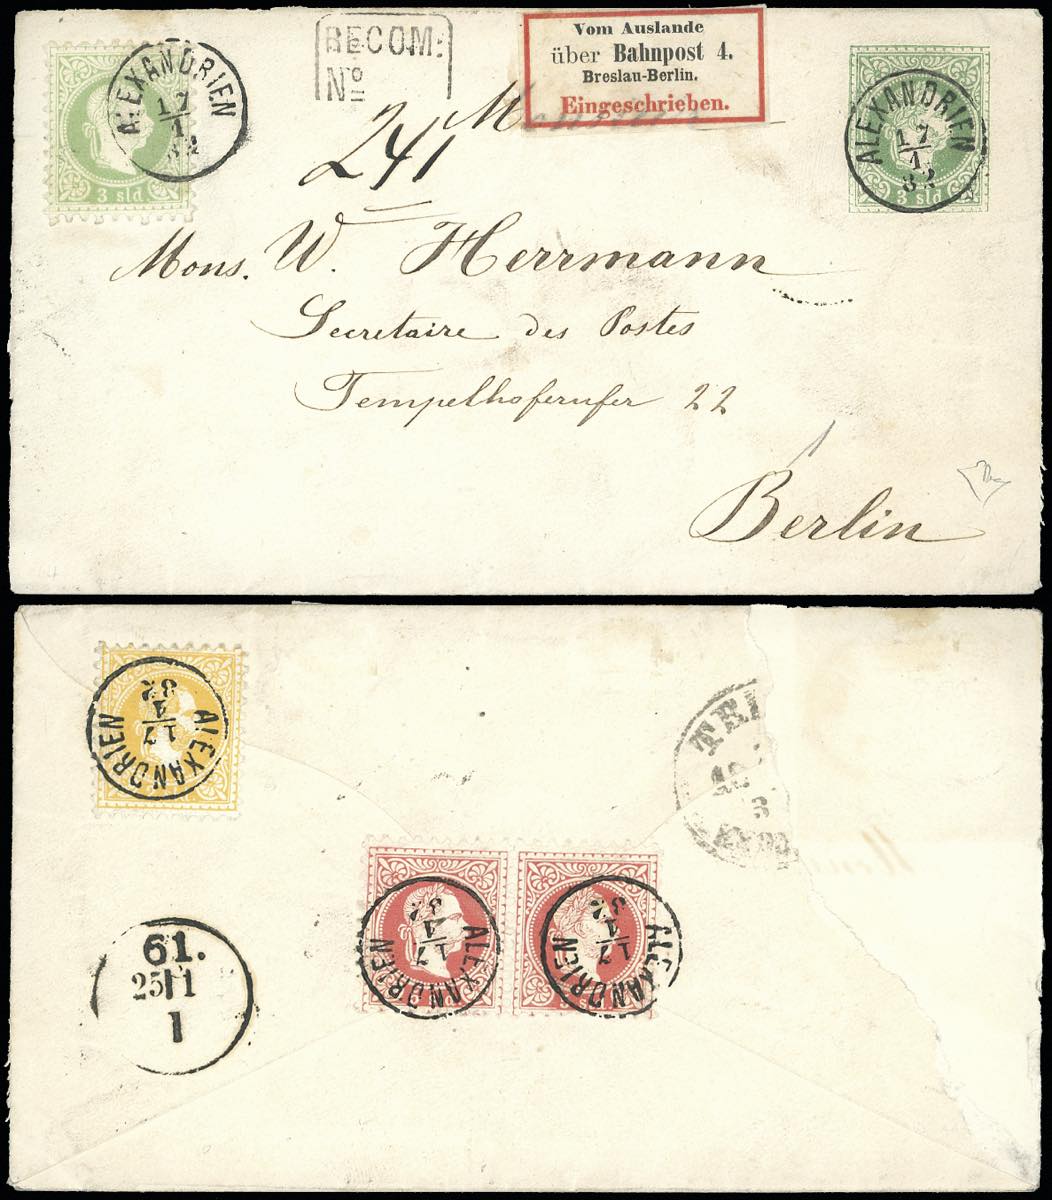 RECOM:
No
241
Vom Auslande
über Bahnpost 4.
Breslau-Berlin.
Eingeschrieben.
ALEXANDRIEN
17
1
82
3 sld
ALEXANDRIEN
17
1
82
3 sld
Mons. W. Herrmann
Secretaire des Postes
Tempelhoferufer 22
Berlin
ALEXANDRIEN
17
1
82
ALEXANDRIEN
17
1
82
ALEXANDRIEN
17
1
61.
25 1
1